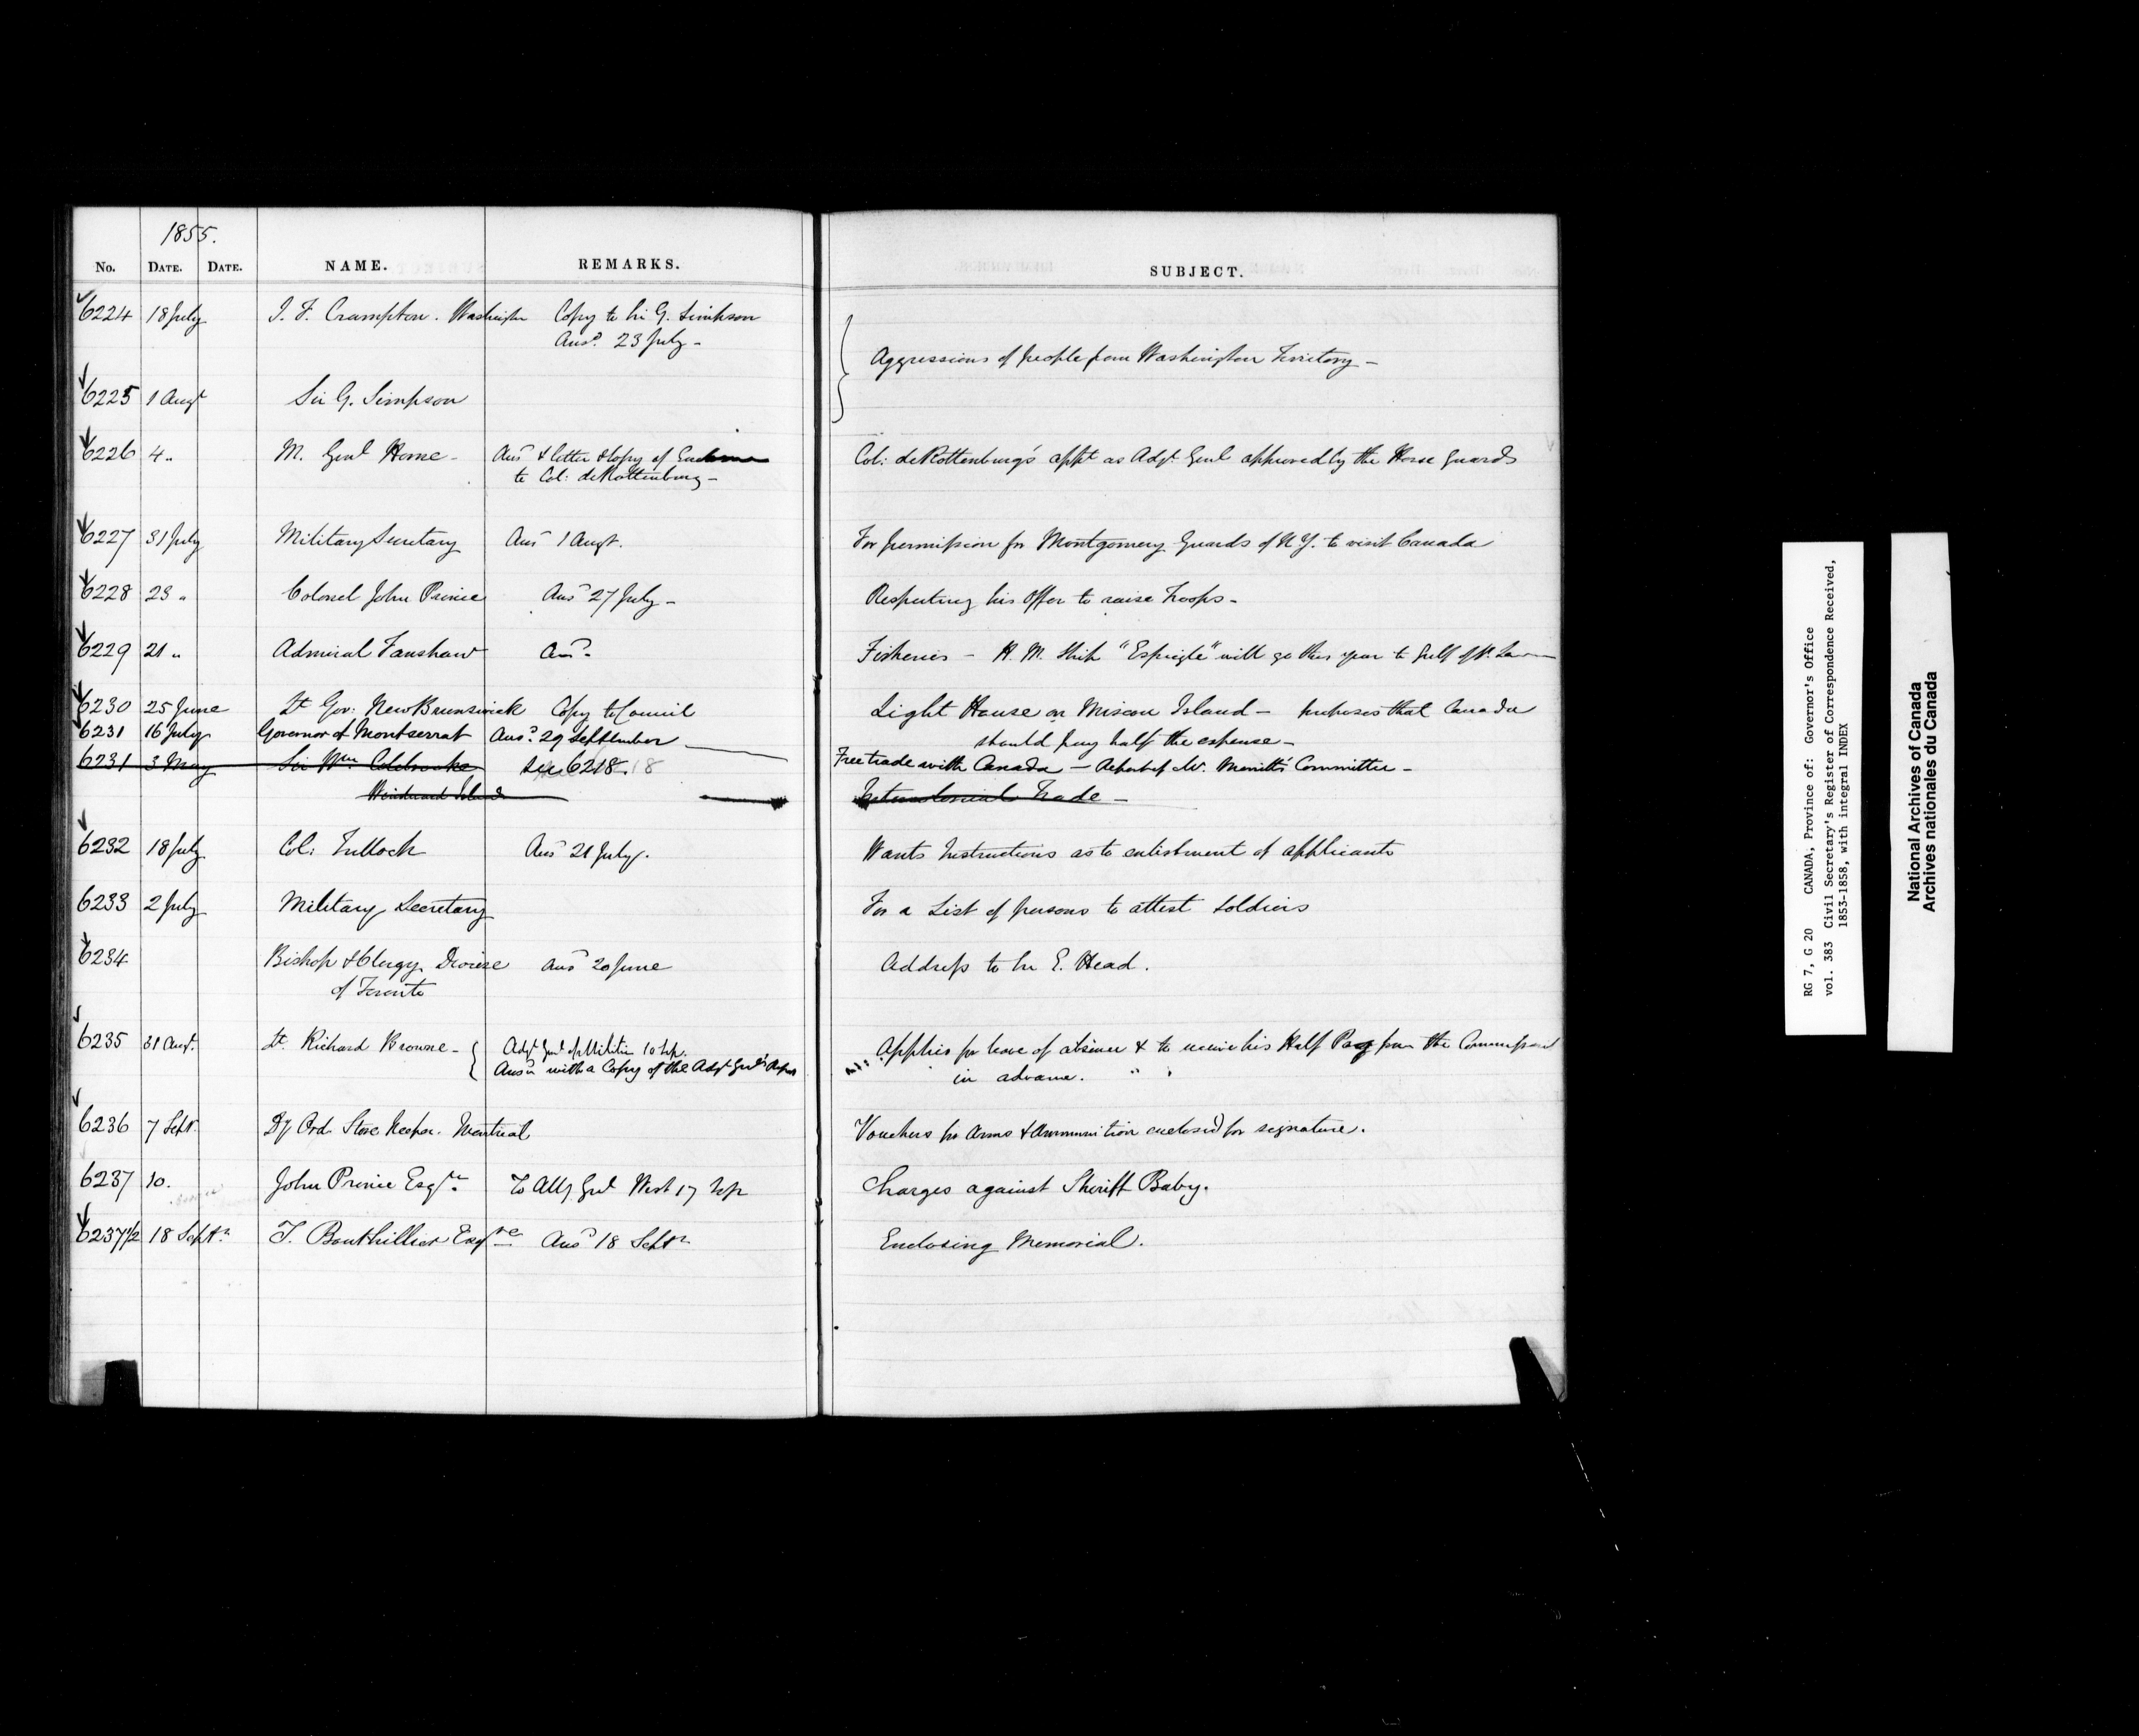 1855.
No. DATE. DATE. NAME. REMARKS. SUBJECT.
6224 18 July J. F. Crampton. Washington Copy to Sir G. Simpson
Ansd. 23 July -
Aggressions of people from Washington Territory -
6225 1 Augt Sir G. Simpson
6226 4 " M. Genl Home - Ansd & letter & copy of
to Col: de Rottenburg -
Col: de Rottenburg's appt as Adjt. Genl approved by the Horse Guards
6227 31 July Military Secretary Ansd 1 Augt. For permission for Montgomery Guards of N.Y. to visit Canada
6228 23 " Colonel John Prince Ansd 27 July - Respecting his offer to raise Troops -
6229 21 " Admiral Fanshaw Ansd. Fisheries - H. M. Ship "Espiegle" will go this year to Gulf of St.
6230 25 June Lt Gov: New Brunswick Copy to Council Light House on Miscou Island - proposes that Canada
should pay half the expense -
6231 16 July Governor of Montserrat Ansd. 29 September
Free trade with Canada - Report of Mr. Merritt's Committee -
6231 3 May Sir Wm Colebrooke See 6218. 18
Windward Islands Intercolonial Trade -
6232 18 July Col: Tulloch Ansd 21 July. Wants Instructions as to enlistment of applicants
6233 2 July Military Secretary For a List of persons to attest soldiers
6234 Bishop & Clergy Diocese Ansd 20 June Address to Sir E. Head.
of Toronto
6235 31 Augt. Lt. Richard Browne - Adjt Genl of Militia 10 Sep.
Ansd with a Copy of the Adjt Genl's Report
Applies for leave of absence & to receive his Half Pay from the
in advance. " "
6236 7 Sept. Dy Ord. Store Keeper. Montreal Vouchers for Arms & Ammunition enclosed for signature.
6237 10. John Prince Esqre. To Atty Genl West 17 Sep Charges against Sheriff Baby.
6237 1/2 18 Septr. T. Bouthillier Esqre Ansd 18 Septr Enclosing Memorial.
RG 7, G 20 CANADA, Province of: Governor's Office
vol. 383 Civil Secretary's Register of Correspondence Received,
1853-1858, with integral INDEX
National Archives of Canada
Archives nationales du Canada